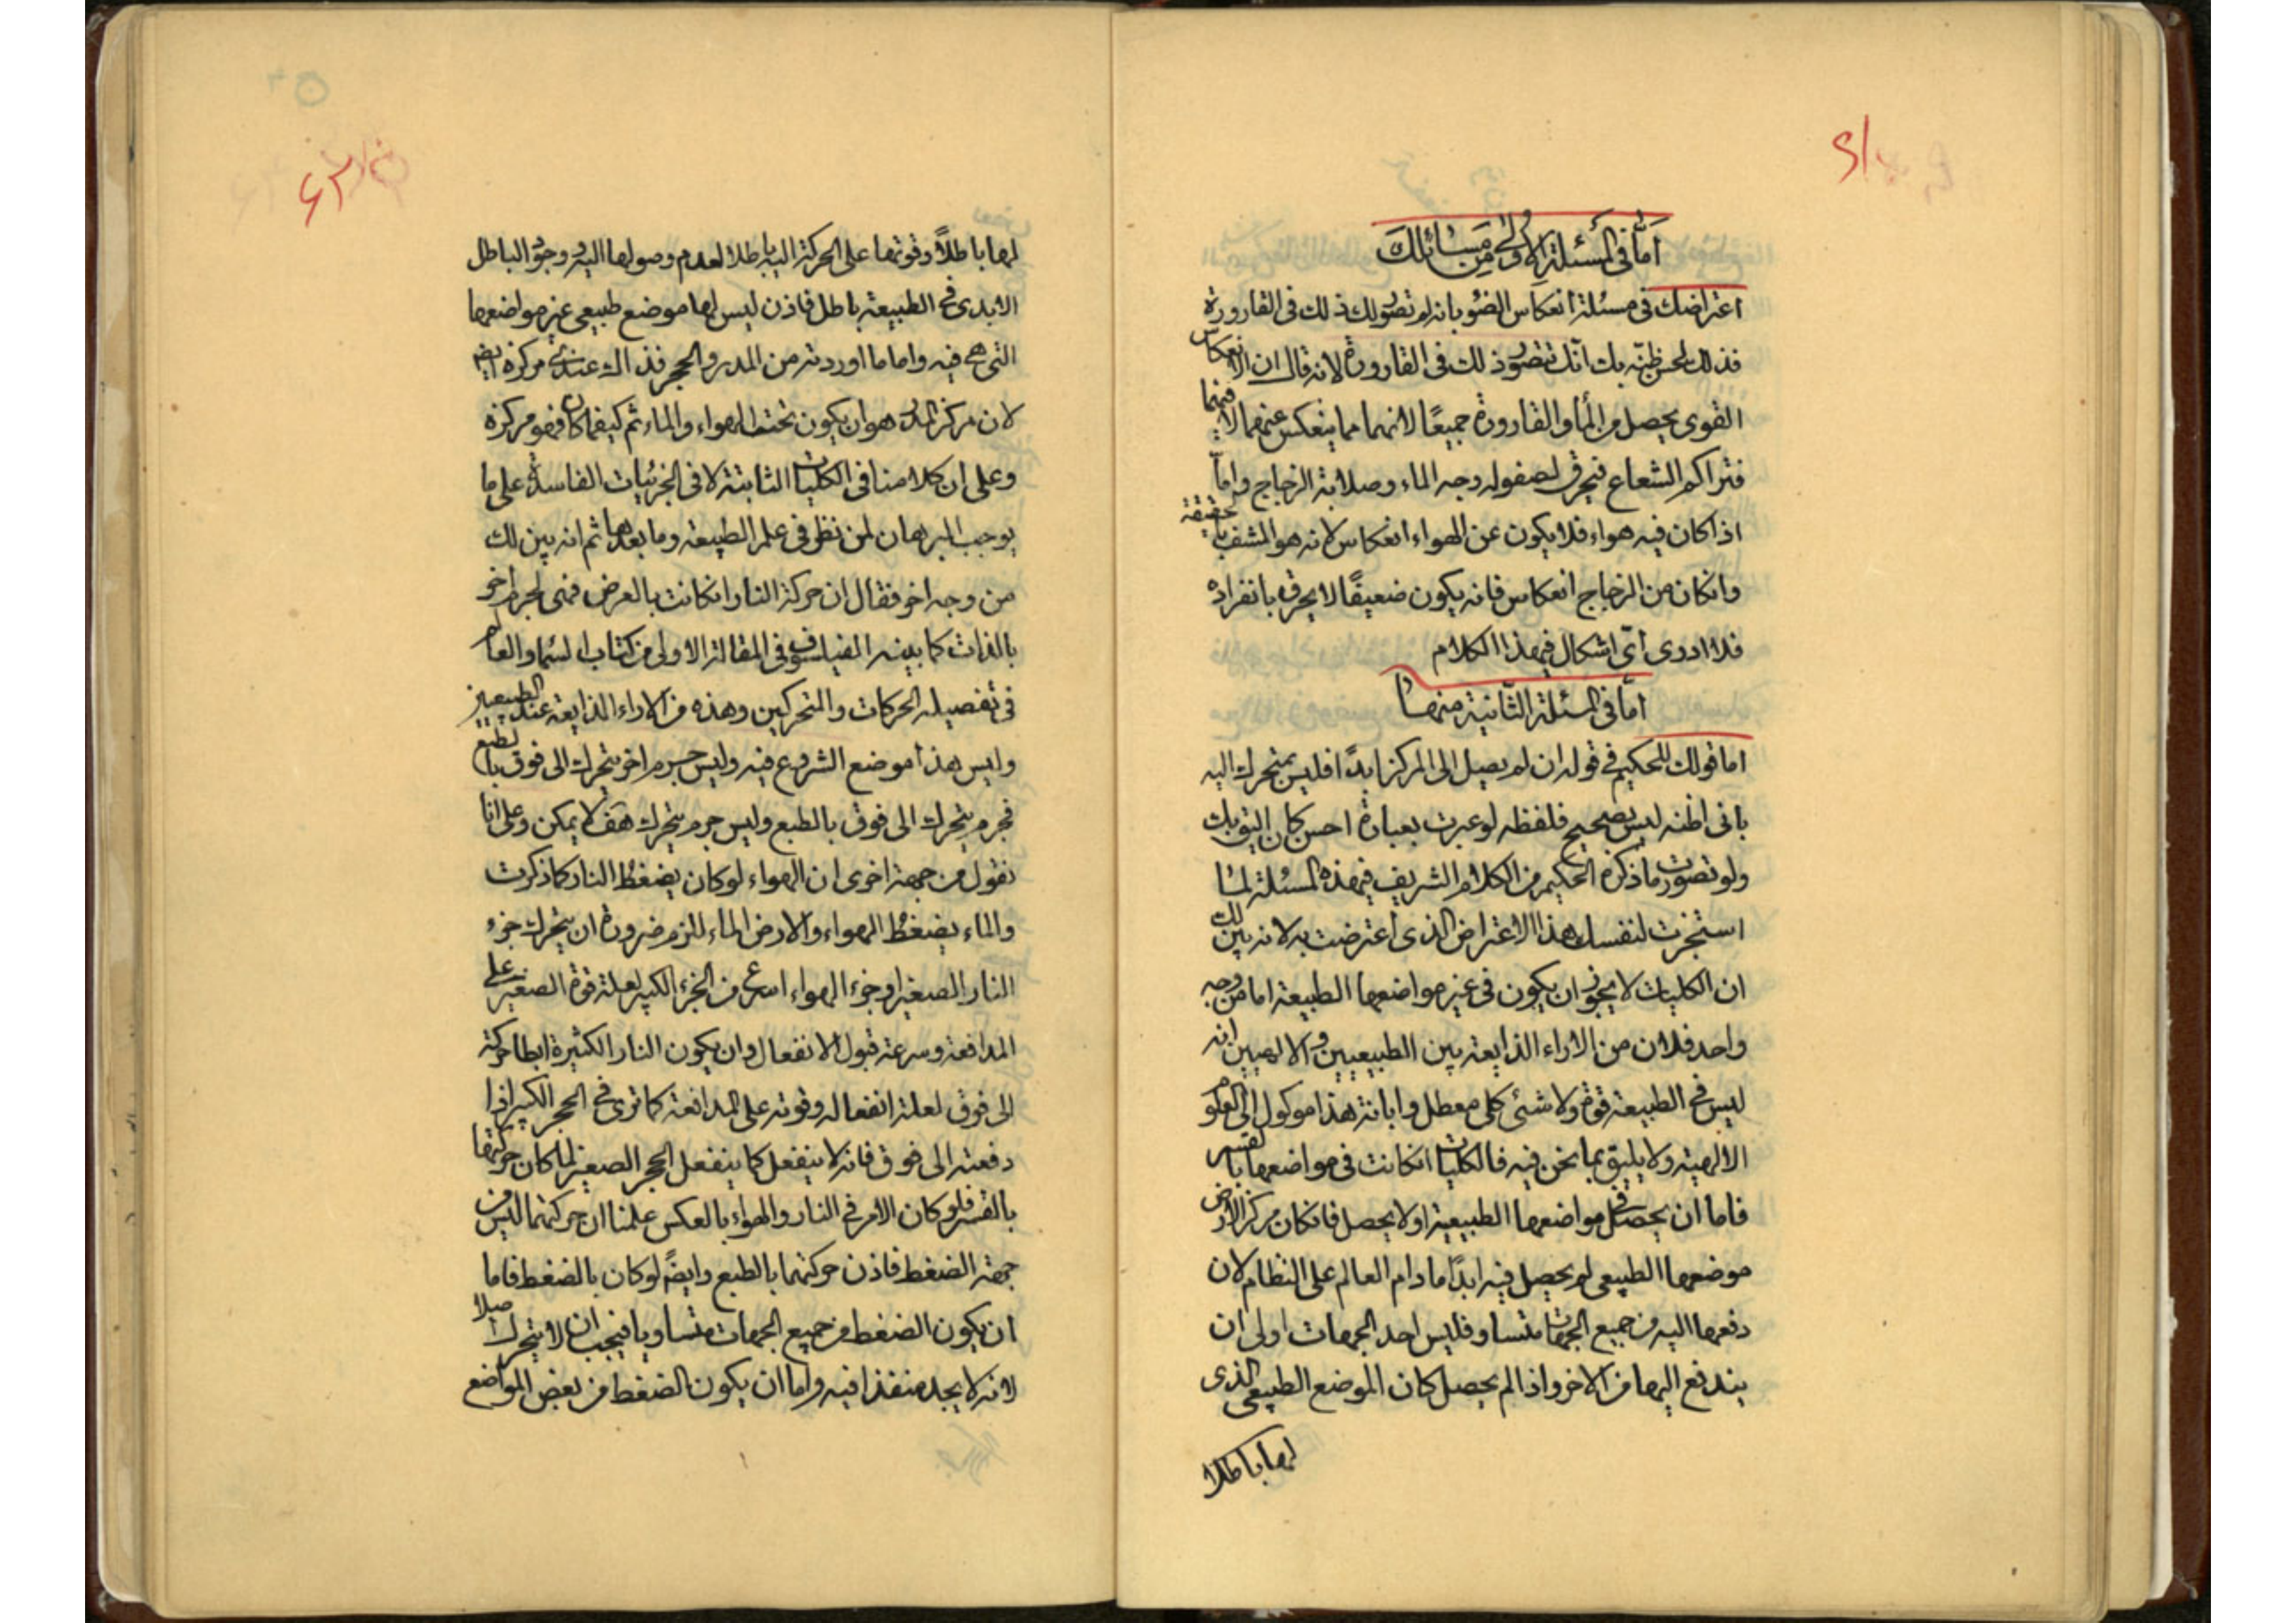 اما فى المسئلة الاولى من مسائلك
اعتراضك فى مسئلة انعكاس الضوء بانه لم تصور لك ذلك فى القارورة
فذلك لحسن ظنه بك انك تتصور ذلك فى القارورة لانه قال ان الانعكاس
القوى يحصل من الماء والقارورة جميعًا لانهما مما ينعكس عنهما لا فيهما
فتراكم الشعاع فيحرق لصقوله وجه الماء وصلابة الزجاج واما
اذا كان فيه هواء فلا يكون عن الهواء انعكاس لانه هو المشف بالحقيقة
وانكان من الزجاج انعكاس فانه يكون ضعيفًا لا يحرق بانفراده
فلا ادرى اى اشكال فى هذا الكلام
اما فى المسئلة الثانية منها
اما قولك للحكيم فى قوله ان لم يصل الى المركز ابدًا فليس بمتحرك اليه
بانى اظنه ليس بصحيح فلفظه لو عبرت بعبارة احسن كان اليق بك
ولو تصورت ما ذكره الحكيم من الكلام الشريف فى هذه المسئلة لما
استخرت لنفسك هذا الاعتراض الذى اعترضت به لانه بين لك
ان الكليات لا يجوز ان يكون فى غير مواضعها الطبيعة اما من وجه
واحد فلان من الاراء الذايعة بين الطبيعيين والالهيين انه
ليس فى الطبيعة قوة ولا شئ كلى معطل وابانة هذا موكول الى العلوم
الالهية ولا يليق بما نحن فيه فالكليات انكانت فى مواضعها بالقسر
فاما ان يحصل فى مواضعها الطبيعية او لا يحصل فانكان مركز الارض
موضعها الطبيعى لم يحصل فيه ابدًا ما دام العالم على النظام لان
دفعها اليه من جميع الجهات متساو فليس احد الجهات اولى ان
يندفع اليها من الاخر واذا لم يحصل كان الموضع الطبيعى الذى
لها باطلا
لها باطلاً وقوتها على الحركة اليه باطلا لعدم وصولها اليه وجود الباطل
الابدى فى الطبيعة باطل فاذن ليس لها موضع طبيعى غير مواضعها
التى هى فيه واما ما اوردته من المدر والحجر فذاك عندى مركزه ايضا
لان مركز المدر هو ان يكون تحت الهواء والماء ثم كيفما كان فهو مركزه
وعلى ان كلامنا فى الكليات الثابتة لا فى الجزئيات الفاسدة على ما
يوجب البرهان لمن نظر فى علم الطبيعة وما بعدها ثم انه بين لك
من وجه اخر فقال ان حركة النار انكانت بالعرض فهى لجرم اخر
بالذات كما بينه الفيلسوف فى المقالة الاولى من كتاب السماء والعالم
فى تفصيله الحركات والمتحركين وهذه من الاراء الذايعة عند الطبيعيين
وليس هذا موضع الشروع فيه وليس جرم اخر يتحرك الى فوق بالطبع
فجرم يتحرك الى فوق بالطبع وليس جرم يتحرك هف لا يمكن وعلى انا
نقول من جهة اخرى ان الهواء لو كان يضغط النار كما ذكرت
والماء يضغط الهواء والارض الماء للزم ضرورة ان يتحرك جزء
النار الصغير او جزء الهواء اسرع من الجزء الكبير لعلة قوة الصغير على
المدافعة وسرعة قبول الانفعال وان يكون النار الكثيرة ابطا حركة
الى فوق لعلة انفعاله وقوته على المدافعة كما ترى فى الحجر الكبير اذا
دفعته الى فوق فانه لا ينفعل كما ينفعل الحجر الصغير لما كان حركتها
بالقسر فلو كان الامر فى النار والهواء بالعكس علمنا ان حركتهما ليس من
جهة الضغط فاذن حركتهما بالطبع وايضً لو كان بالضغط فاما
ان يكون الضغط من جميع الجهات متساويا فيجب ان لا يتحرك اصلا
لانه لا يجد منفذا فيه واما ان يكون الضغط من بعض المواضع